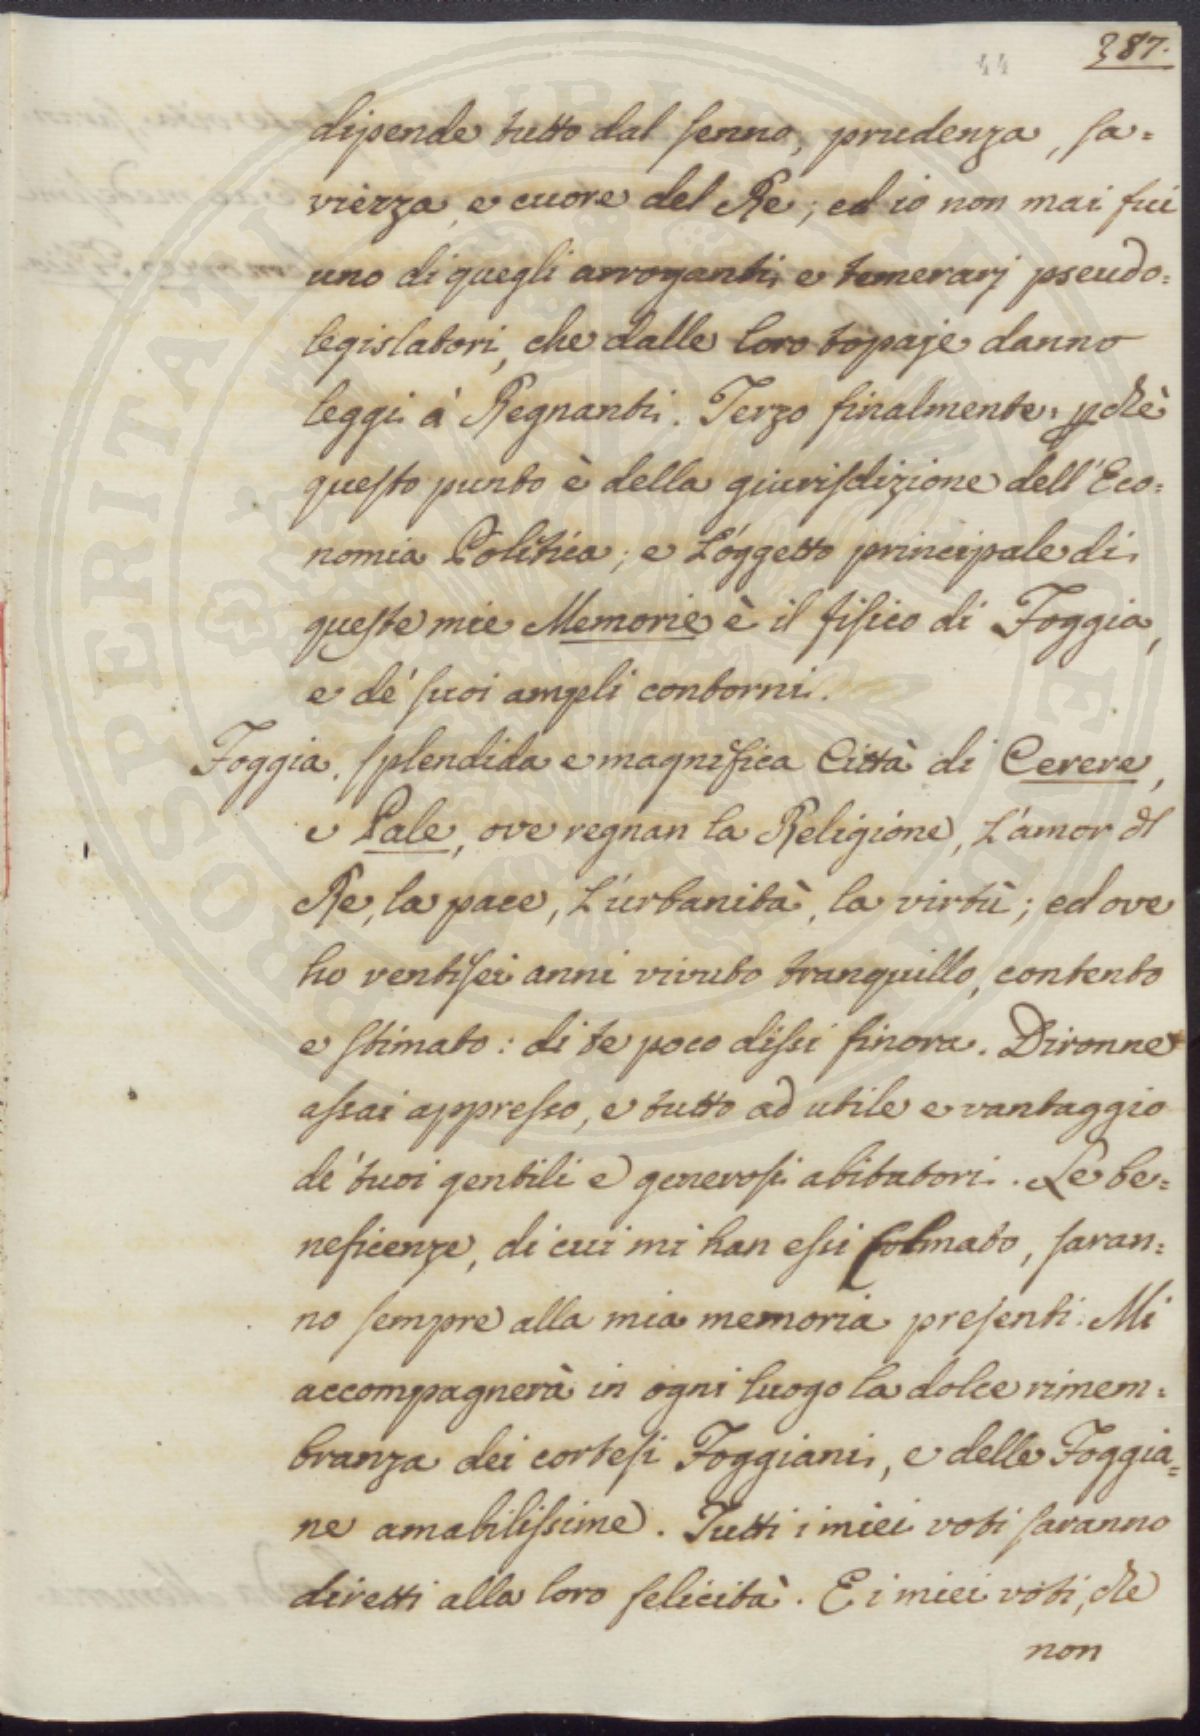 387.
44
dipende tutto dal senno, prudenza, sa=
viezza, e cuore del Re; ed io non mai fui
uno di quegli arroganti, e temerarj pseudo=
legislatori, che dalle loro topaje danno
leggi a' Regnanti. Terzo finalmente, pchè
questo punto è della giurisdizione dell'Eco=
nomia Politica; e l'oggetto principale di
queste mie Memorie è il fisico di Foggia,
e de' suoi ampli contorni.
Foggia, splendida e magnifica Città di Cerere,
e Pale, ove regnan la Religione, l'amor dl
Re, la pace, l'urbanità, la virtù; ed ove
ho ventisei anni vivuto tranquillo, contento
e stimato: di te poco dissi finora. Dironne
assai appresso, e tutto ad utile e vantaggio
de' tuoi gentili e generosi abitatori. Le be=
neficenze, di cui mi han essi colmato, saran=
no sempre alla mia memoria presenti. Mi
accompagnerà in ogni luogo la dolce rimem=
branza dei cortesi Foggiani, e delle Foggia=
ne amabilissime. Tutti i miei voti saranno
diretti alla loro felicità. E i miei voti, che
non
PROSPERITATI AVRI